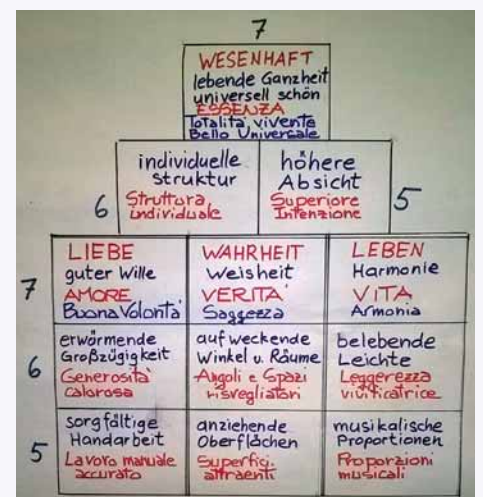 7
WESENHAFT
lebende Ganzheit
universell schön
ESSENZA
Totalità vivente
Bello Universale
individuelle
Struktur
Struttura
individuale
höhere
Absicht
Superiore
Intenzione
6
5
7
LIEBE
guter Wille
AMORE
Buona Volontà
WAHRHEIT
Weisheit
VERITA'
Saggezza
LEBEN
Harmonie
VITA
Armonia
6
erwärmende
Großzügigkeit
Generosità
Calorosa
aufweckende
Winkel u. Räume
Angoli e Spazi
risvegliatori
belebende
Leichte
Leggerezza
vivificatrice
5
sorgfältige
Handarbeit
Lavoro manuale
accurato
anziehende
Oberflächen
Superfici
attraenti
musikalische
Proportionen
Proporzioni
musicali